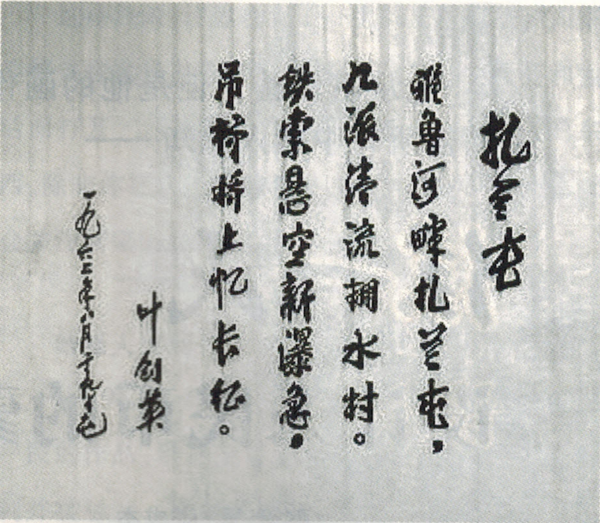 扎兰屯
雅鲁河畔扎兰屯，
几派清流拥水村。
铁索悬空新瀑急，
吊桥桥上忆长征。
叶剑英
一九六二年八月